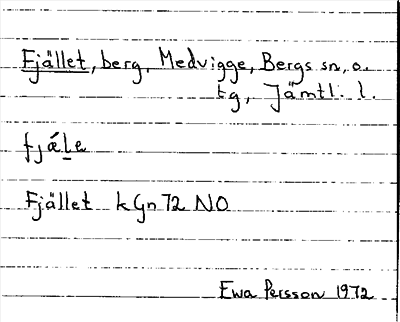 Fjället, berg, Medvigge, Bergs sn, o.
tg, Jämtl. l.
fjǽle
Fjället kGn 72 NO
Ewa Persson 1972